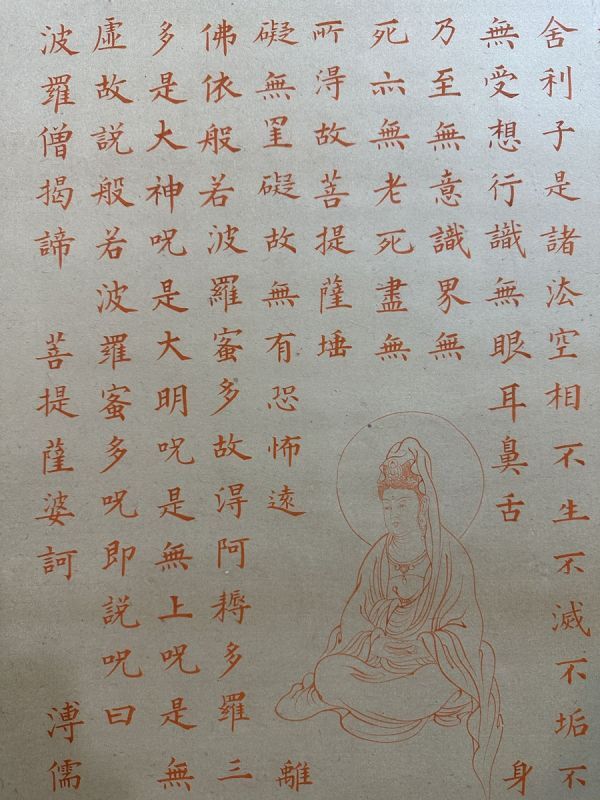 舍利子是諸法空相不生不滅不垢不
無受想行識無眼耳鼻舌身
乃至無意識界無
死亦無老死盡無
所得故菩提薩埵
礙無罣礙故無有恐怖遠離
佛依般若波羅蜜多故得阿耨多羅三
多是大神呪是大明呪是無上呪是無
虛故説般若波羅蜜多呪即説呪曰
波羅僧揭諦 菩提薩婆訶 溥儒